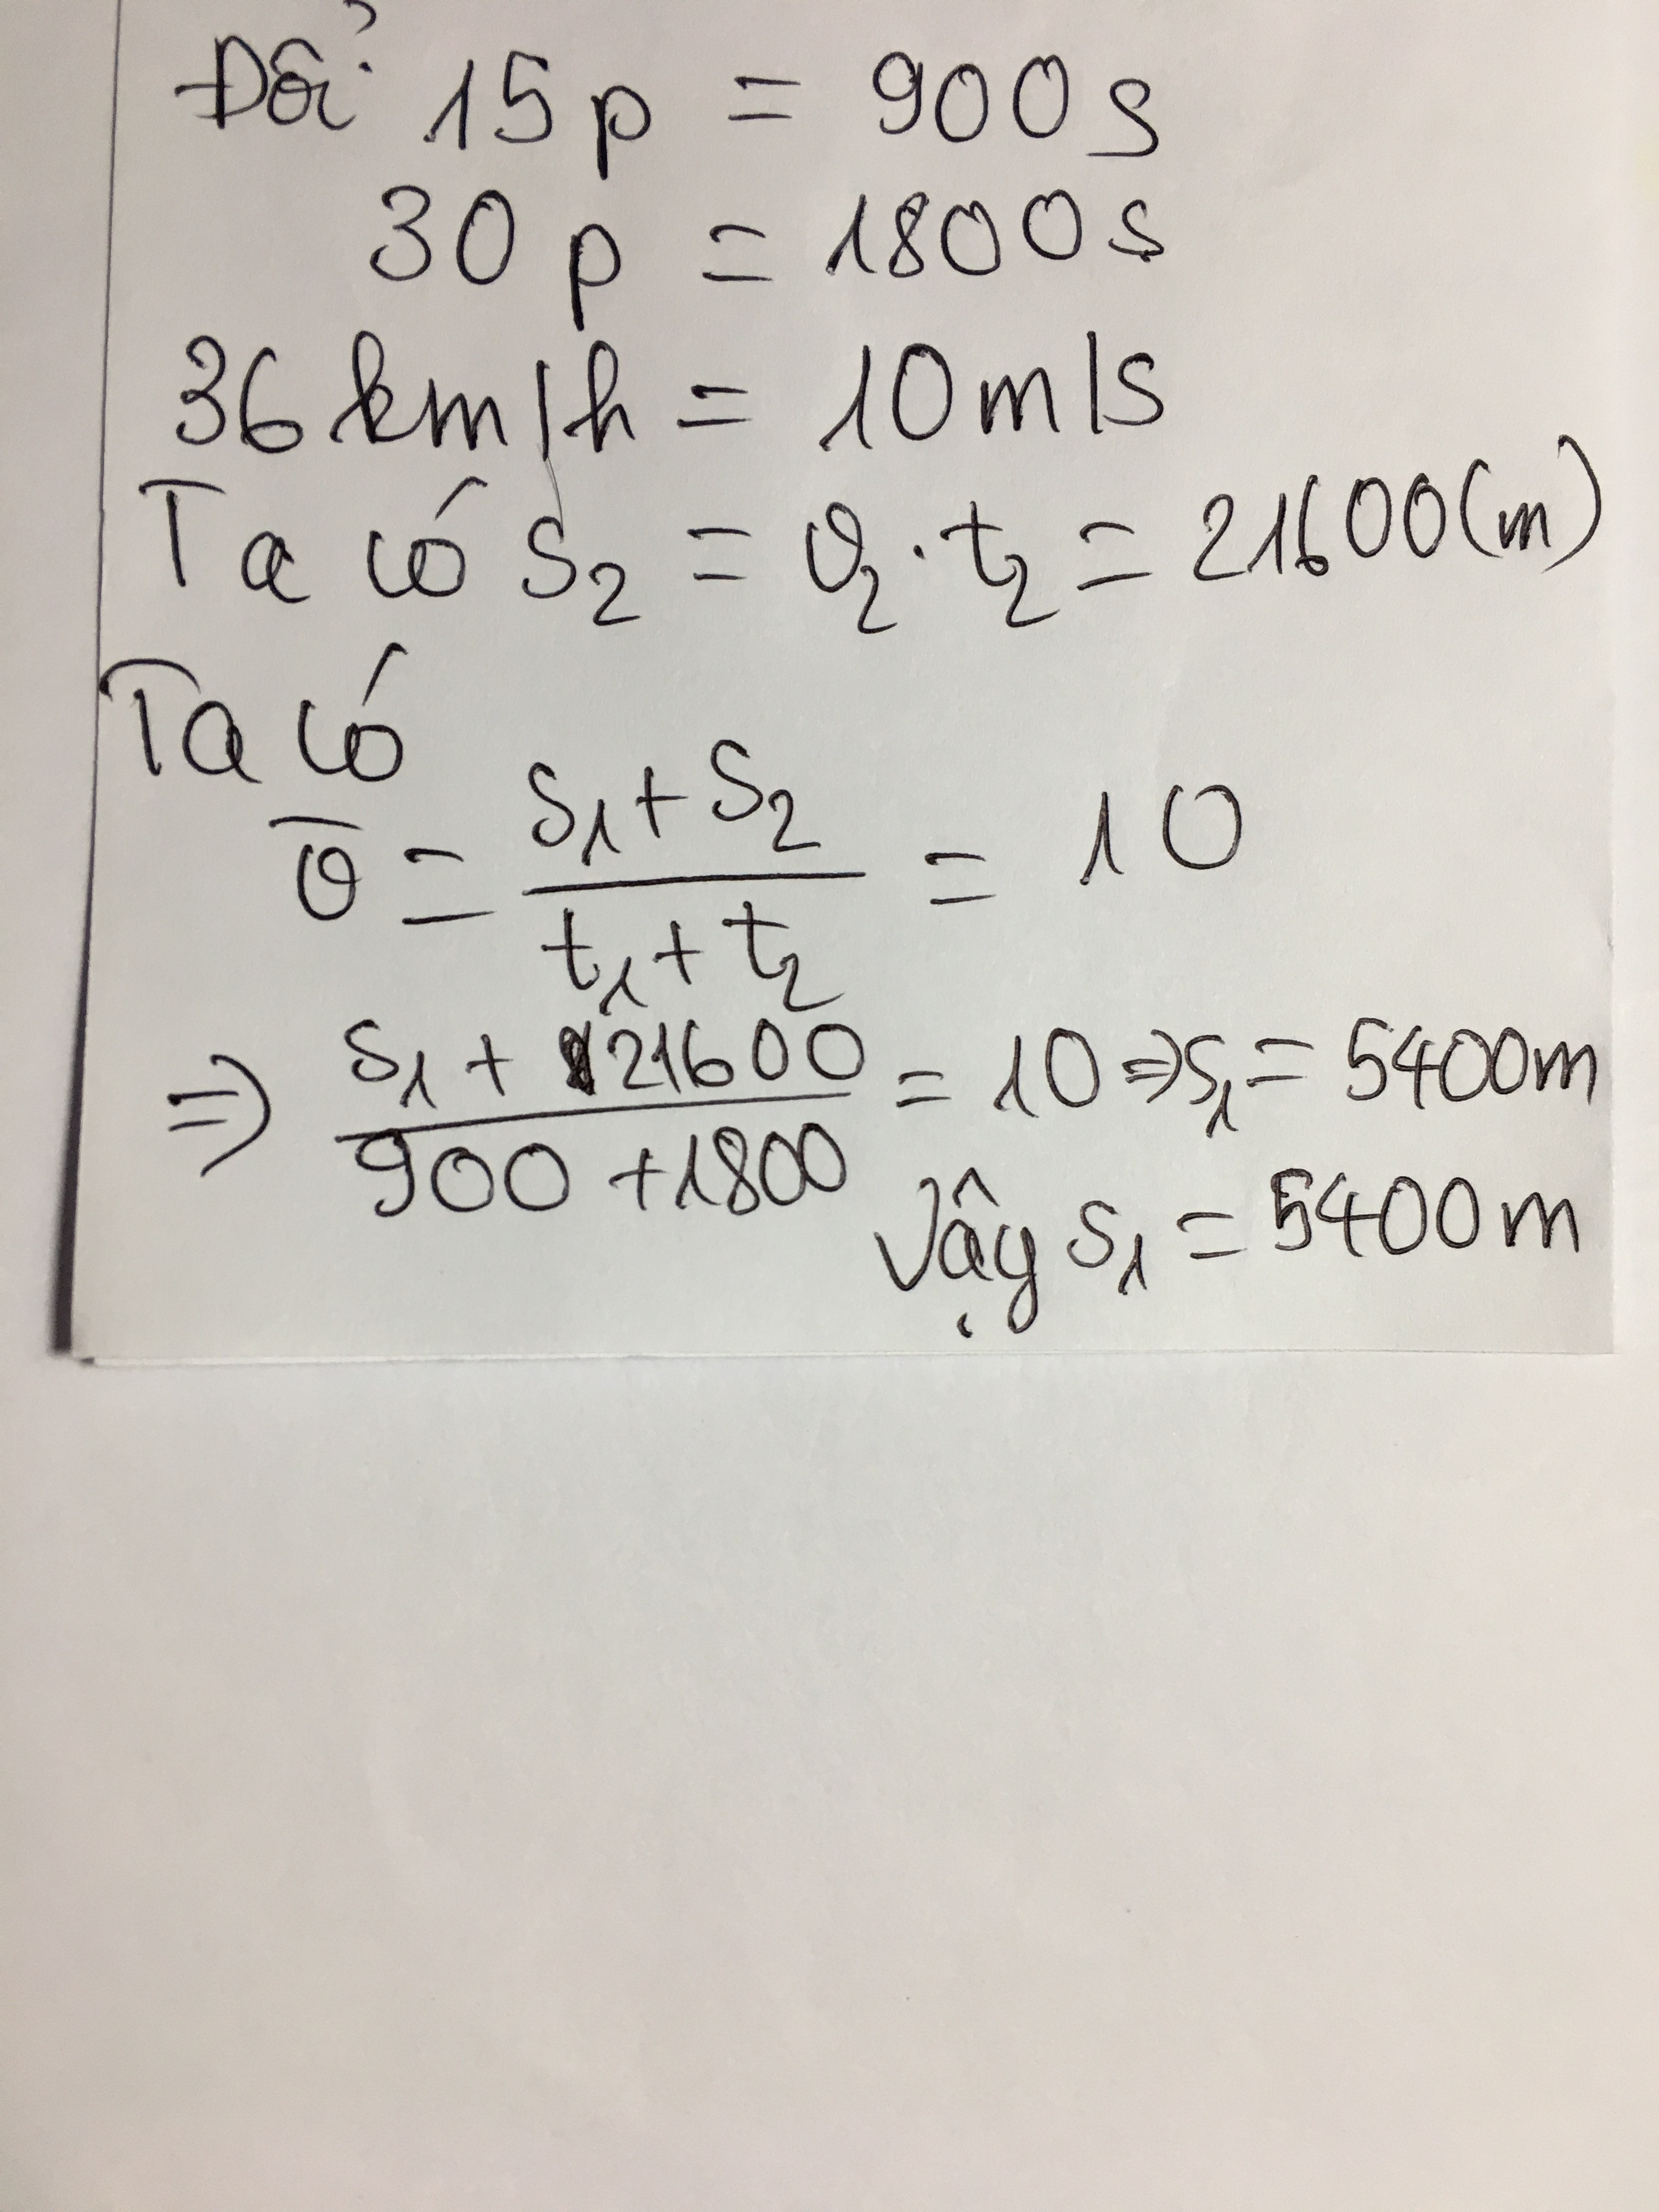 Đổi 15p = 900s
30p = 1800s
36km/h = 10m/s
Ta có S₂ = v₂.t₂ = 21600(m)
Ta có
v̅ = (S₁+S₂)/(t₁+t₂) = 10
⇒ (S₁+21600)/(900+1800) = 10 ⇒ S₁ = 5400m
Vậy S₁ = 5400m